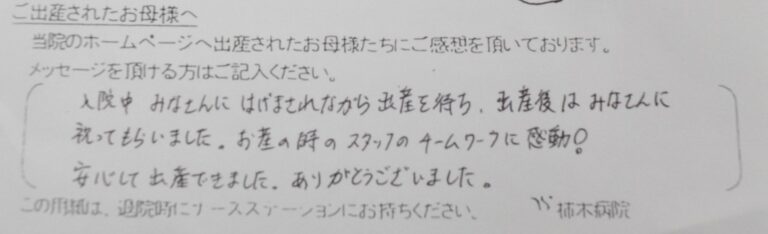 ご出産されたお母様へ
当院のホームページへ出産されたお母様たちにご感想を頂いております。
メッセージを頂ける方はご記入ください。
入院中 みなさんに はげまされながら 出産を待ち、出産後は みなさんに
祝ってもらいました。お産の時の スタッフの チームワークに 感動!
安心して 出産できました。ありがとうございました。
この用紙は、退院時にナースステーションにお持ちください。 柿木病院